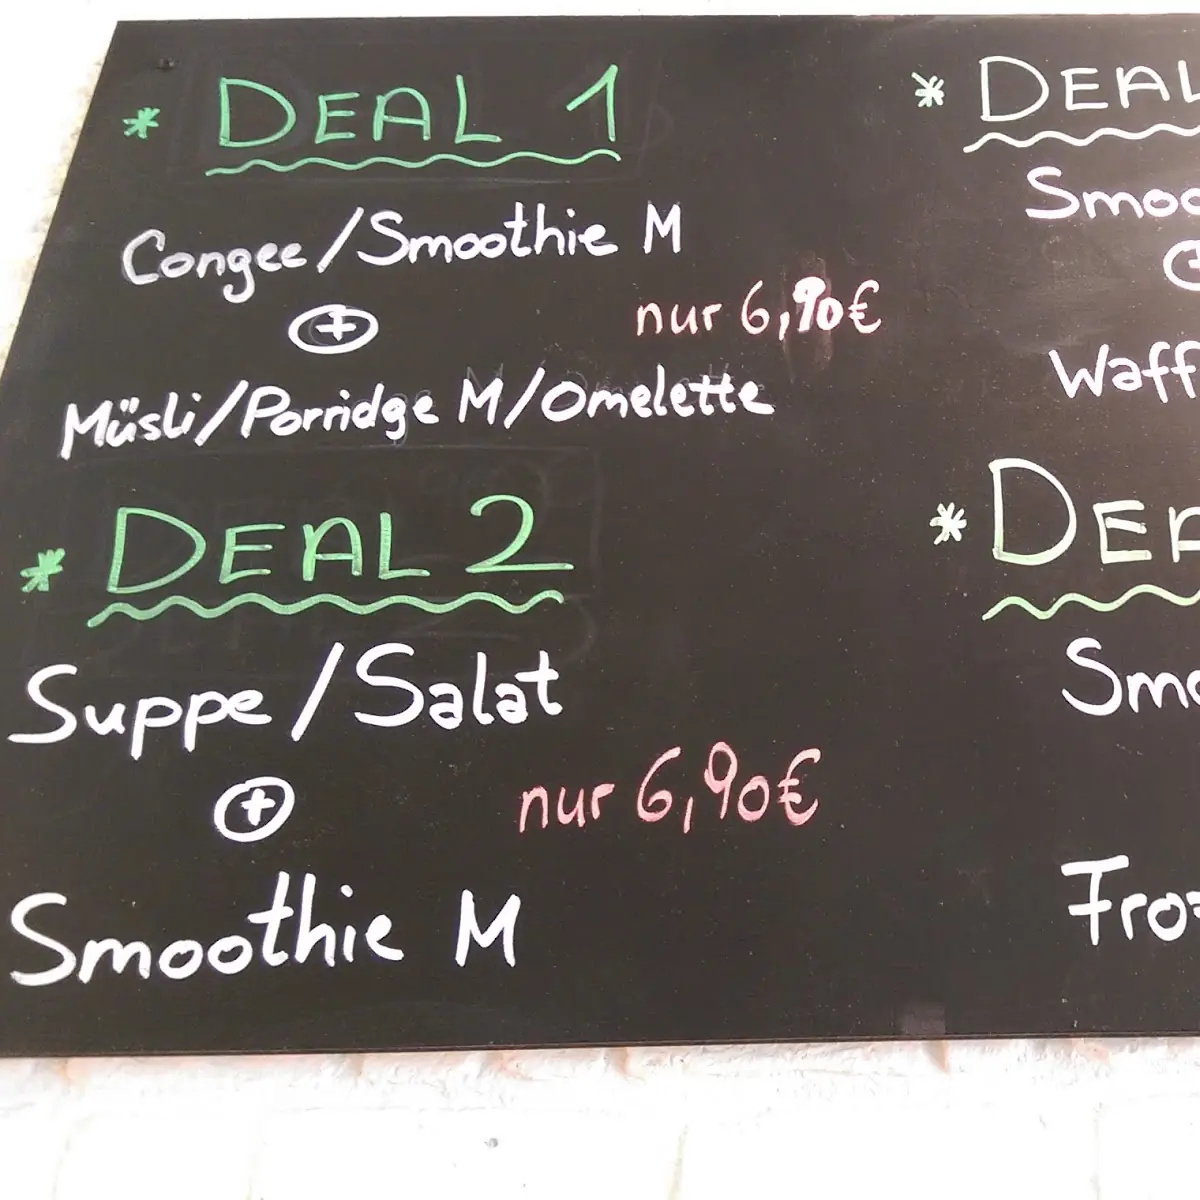 * DEAL 1
Congee/Smoothie M
+
nur 6,90€
Müsli/Porridge M/Omelette
* DEAL 2
Suppe/Salat
+
nur 6,90€
Smoothie M
* DEAL